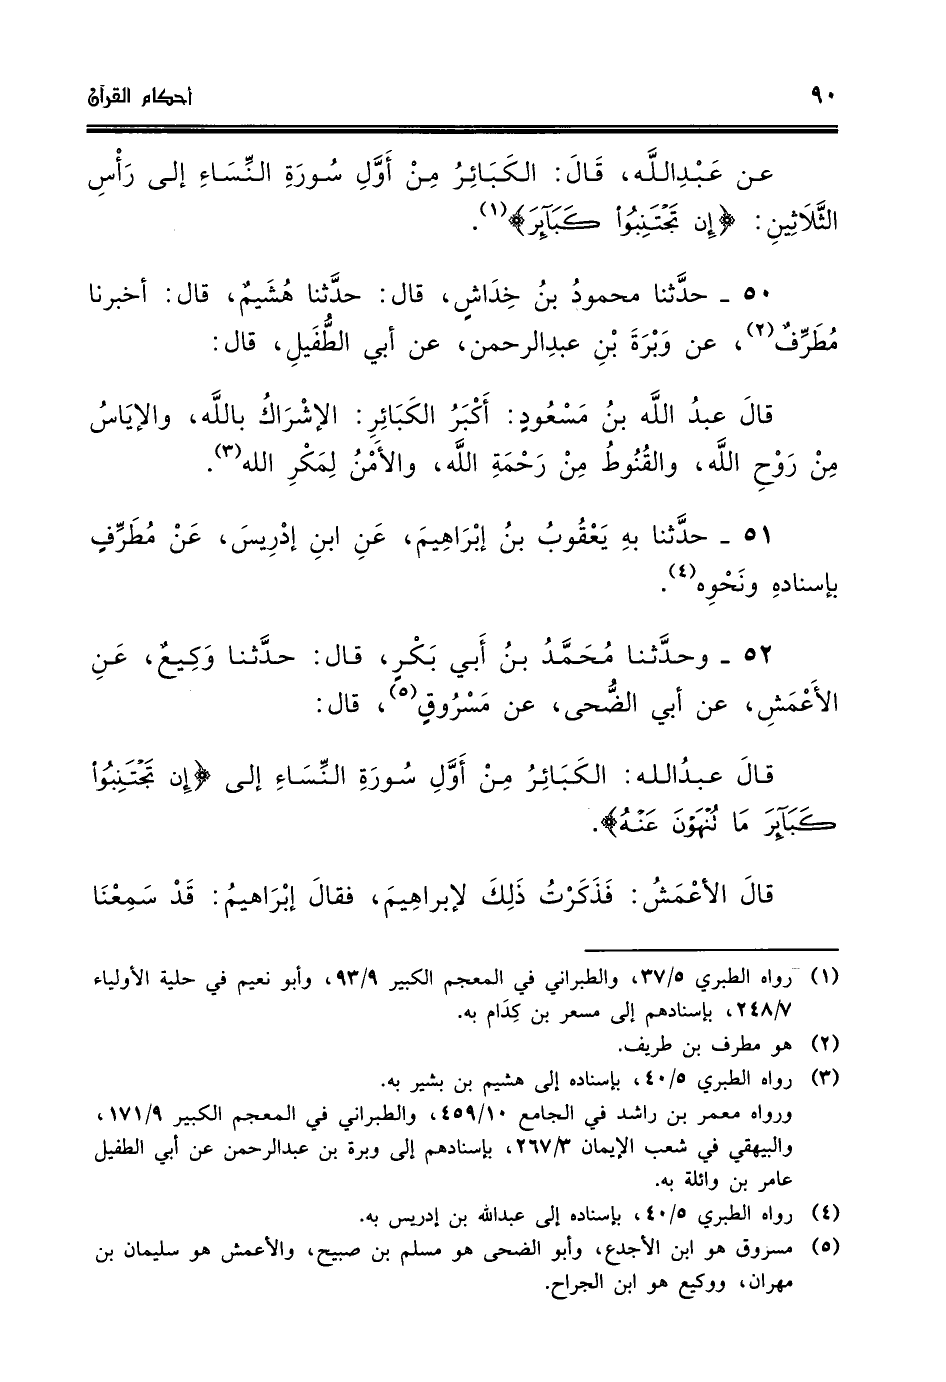 ٩٠ أحكام القرآن
عن عَبْدِاللَّه، قَالَ: الكَبَائِرُ مِنْ أَوَّلِ سُورَةِ النِّسَاءِ إلى رَأْسِ
الثَّلَاثِينِ: ﴿إِن تَجْتَنِبُواْ كَبَآئِرَ﴾(١).
٥٠ ـ حدَّثنا محمودُ بنُ خِدَاشٍ، قال: حدَّثنا هُشَيمٌ، قال: أخبرنا
مُطَرِّفٌ(٢)، عن وَبْرَةَ بْنِ عبدِالرحمن، عن أبي الطُّفَيلِ، قال:
قالَ عبدُ اللَّه بنُ مَسْعُودٍ: أَكْبَرُ الكَبَائِرِ: الإشْرَاكُ باللَّه، والإيَاسُ
مِنْ رَوْحِ اللَّه، والقُنُوطُ مِنْ رَحْمَةِ اللَّه، والأَمْنُ لِمَكْرِ الله(٣).
٥١ ـ حدَّثنا بهِ يَعْقُوبُ بنُ إبْرَاهِيمَ، عَنِ ابنِ إدْرِيسَ، عَنْ مُطَرِّفٍ
بإسنادهِ ونَحْوِه(٤).
٥٢ ـ وحدَّثنا مُحَمَّدُ بنُ أَبي بَكْرٍ، قال: حدَّثنا وَكِيعٌ، عَنِ
الأَعْمَشِ، عن أبي الضُّحى، عن مَسْرُوقٍ(٥)، قال:
قالَ عبدُالله: الكَبَائِرُ مِنْ أَوَّلِ سُورَةِ النِّسَاءِ إلى ﴿إِن تَجْتَنِبُواْ
كَبَآئِرَ مَا تُنْهَوْنَ عَنْهُ﴾.
قالَ الأعْمَشُ: فَذَكَرْتُ ذَلِكَ لإبراهِيمَ، فقالَ إبْرَاهيمُ: قَدْ سَمِعْنَا
(١) رواه الطبري ٣٧/٥، والطبراني في المعجم الكبير ٩٣/٩، وأبو نعيم في حلية الأولياء
٢٤٨/٧، بإسنادهم إلى مسعر بن كِدَام به.
(٢) هو مطرف بن طريف.
(٣) رواه الطبري ٤٠/٥، بإسناده إلى هشيم بن بشير به.
ورواه معمر بن راشد في الجامع ٤٥٩/١٠، والطبراني في المعجم الكبير ١٧١/٩،
والبيهقي في شعب الإيمان ٢٦٧/٣، بإسنادهم إلى وبرة بن عبدالرحمن عن أبي الطفيل
عامر بن واثلة به.
(٤) رواه الطبري ٤٠/٥، بإسناده إلى عبدالله بن إدريس به.
(٥) مسروق هو ابن الأجدع، وأبو الضحى هو مسلم بن صبيح، والأعمش هو سليمان بن
مهران، ووكيع هو ابن الجراح.